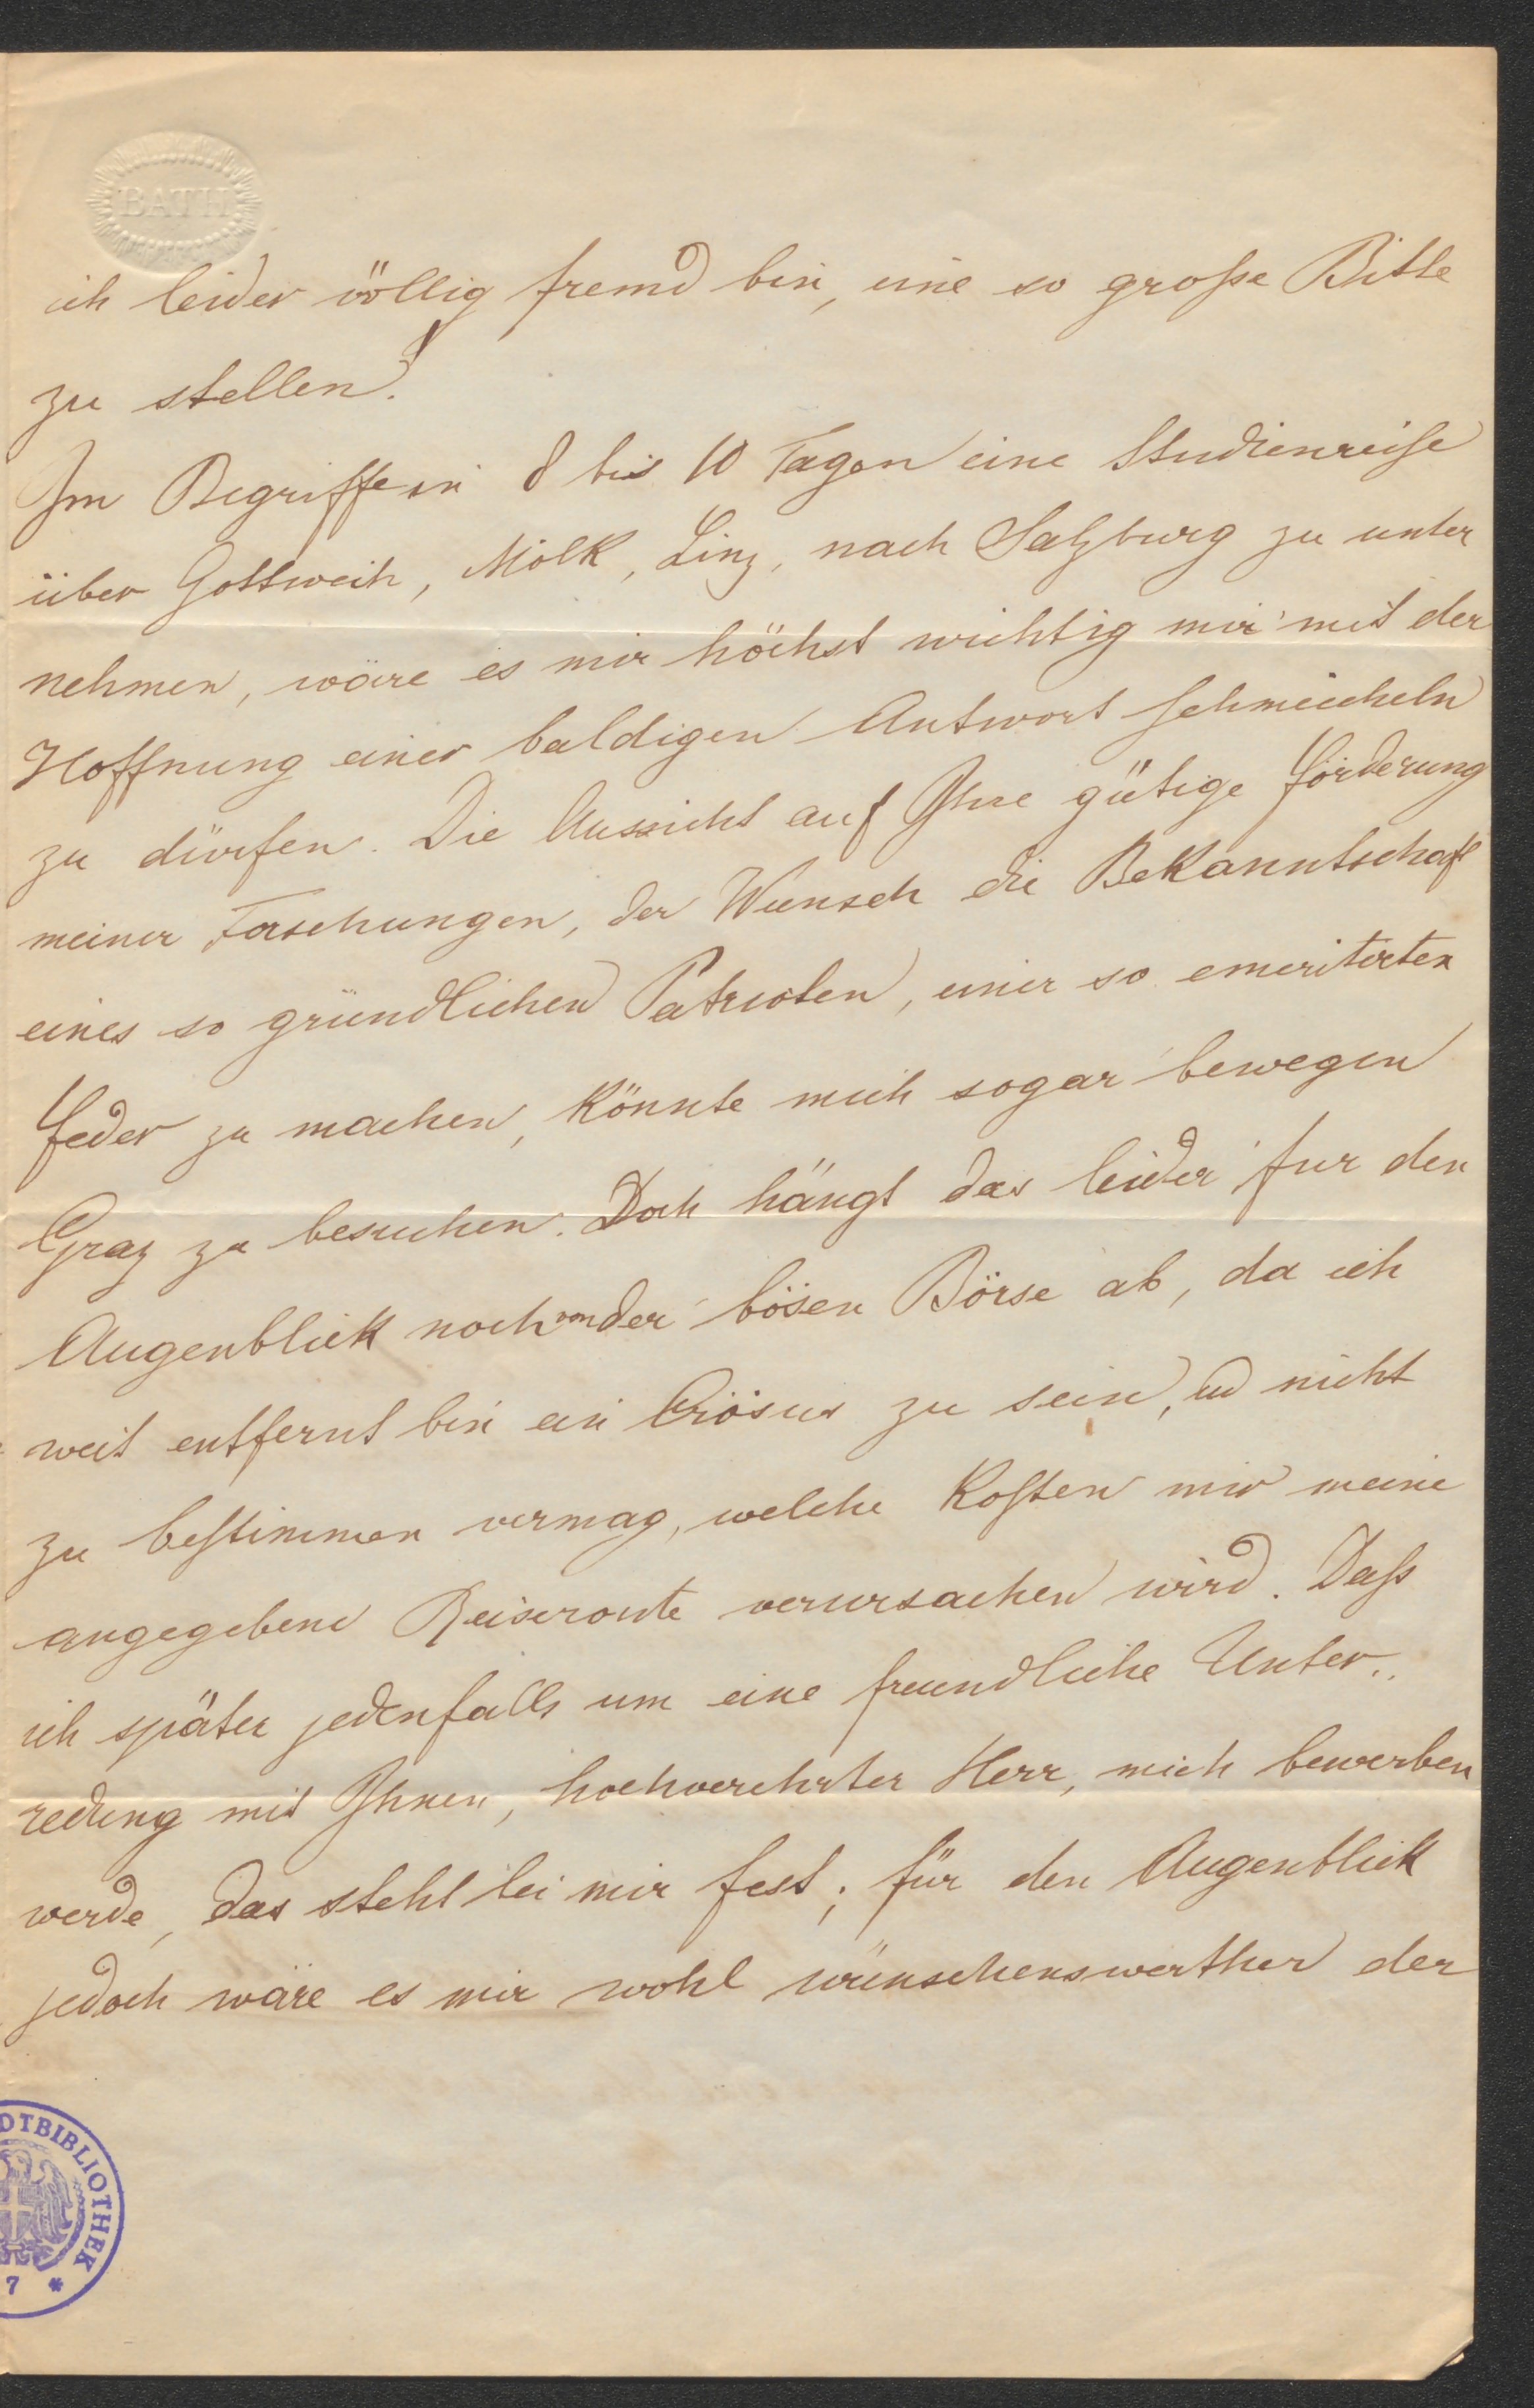 BATH
ich leider völlig fremd bin, eine so große Bitte
zu stellen?
Im Begriffe in 8 bis 10 Tagen eine Studienreise
über Gottweih, Mölk, Linz, nach Salzburg zu unter
nehmen, wäre es mir höchst wichtig mir mit der
Hoffnung einer baldigen Antwort schmeicheln
zu dürfen. Die Aussicht auf Ihre gütige Förderung
meiner Forschungen, der Wunsch die Bekanntschaft
eines so gründlichen Patrioten, einer so emeritirten
Feder zu machen, könnte mich sogar bewegen
Graz zu besuchen. Doch hängt das leider fur den
Augenblick noch von der bösen Börse ab, da ich
weit entfernt bin ein Crösus zu sein, u nicht
zu bestimmen vermag, welche Kosten mir meine
angegebene Reiseroute verursachen wird. Daß
ich später jedenfalls um eine freundliche Unter„
redung mit Ihnen, hochverehrter Herr, mich bewerben
werde, das steht bei mir fest; für den Augenblick
jedoch wäre es mir wohl wünschenswerther der
DTBIBLIOTHEK
7 *